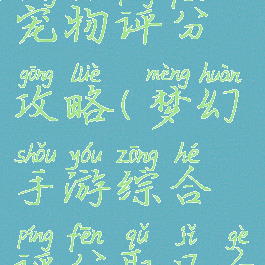 宠物评分
gōng lüè mèng huàn
攻略(梦幻
shǒu yóu zōng hé
手游综合
píng fēn qǔ jǐ gè